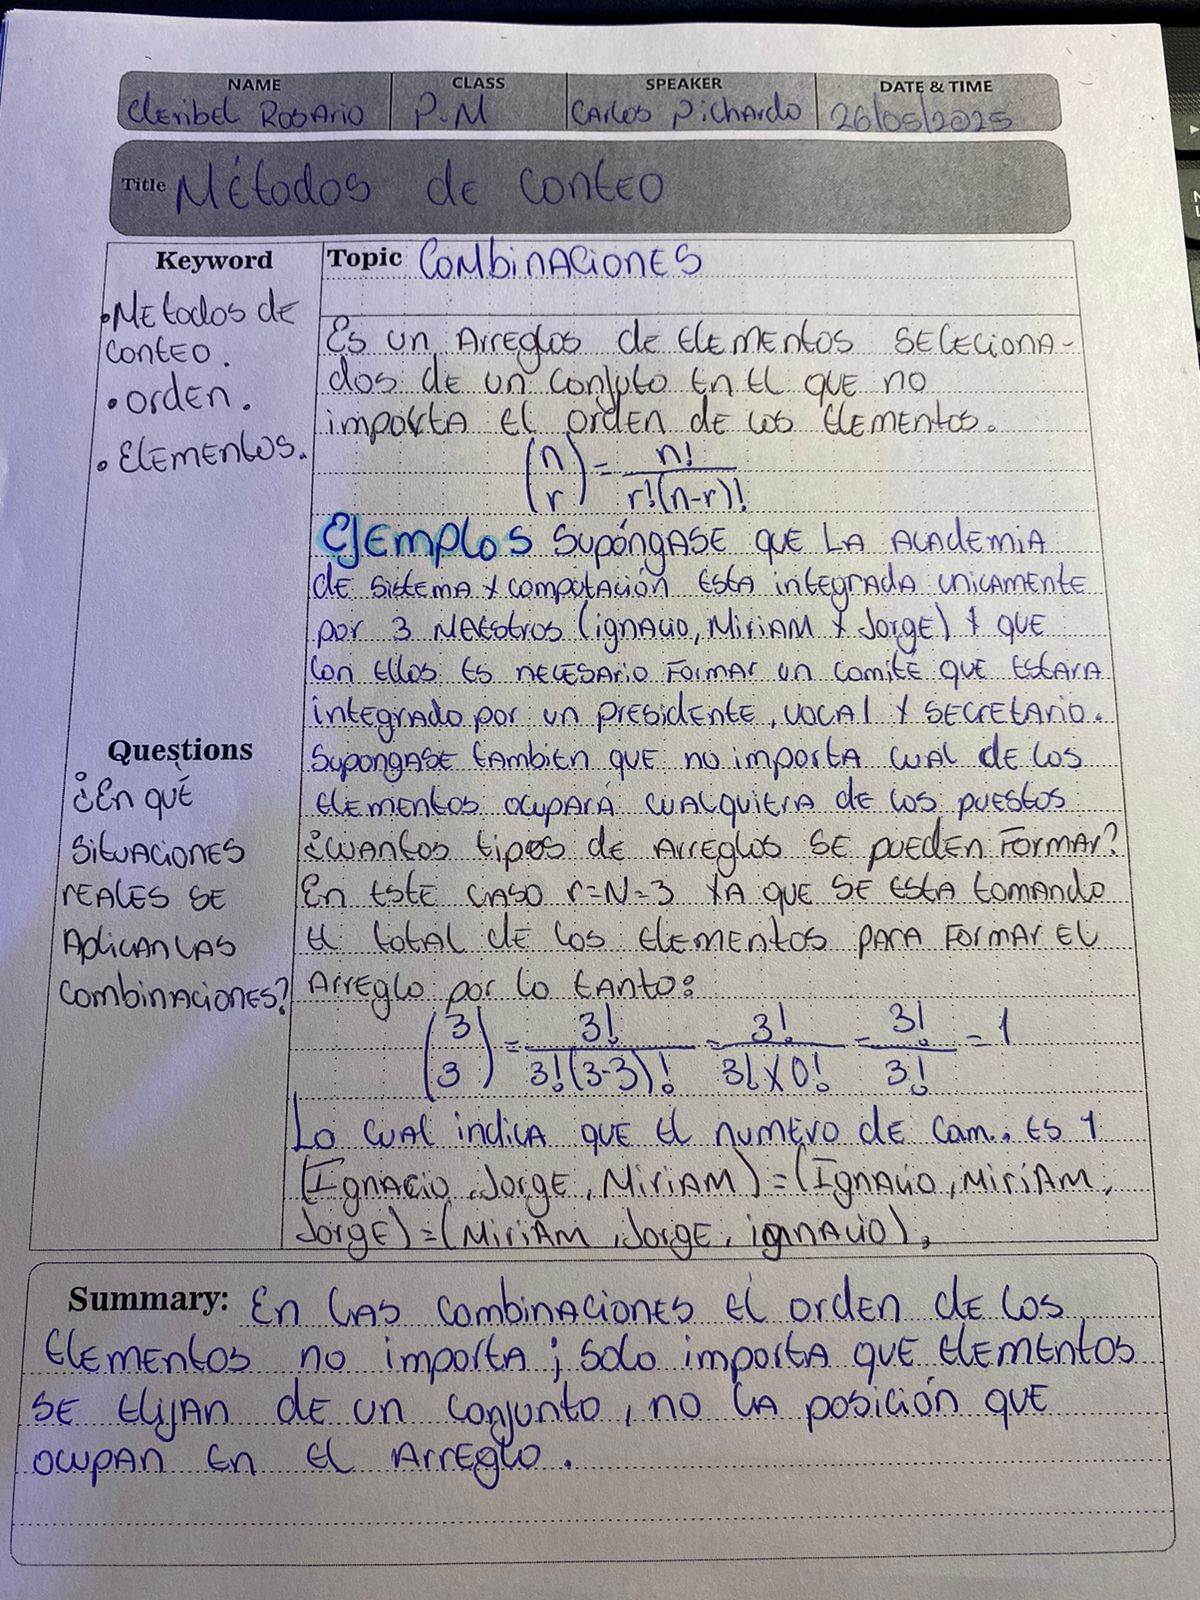 NAME CLASS SPEAKER DATE & TIME
Cleribel Rosario P.M Carlos Pichardo 26/05/2025
Title Métodos de conteo
Keyword
• Metodos de
conteo.
• orden.
• Elementos.
Questions
¿En qué
situaciones
reales se
Aplican las
combinaciones?
Topic Combinaciones
Es un Arreglos de Elementos seleciona-
dos de un conjuto en el que no
importa el orden de los Elementos.
(n r) = n! / r!(n-r)!
Ejemplos Supóngase que la academia
de sistema y computación esta integrada unicamente
por 3 maestros (ignacio, Miriam y Jorge) y que
con ellos es necesario formar un comité que estara
integrado por un presidente, vocal y secretario.
Supongase tambien que no importa cual de los
elementos ocupará cualquiera de los puestos
¿cuantos tipos de Arreglos se pueden formar?
En este caso r=N=3 ya que se esta tomando
el total de los elementos para formar el
Arreglo por lo tanto:
(3 3) = 3! / 3!(3-3)! = 3! / 3! x 0! = 3! / 3! = 1
Lo cual indica que el numero de com.. es 1
(Ignacio, Jorge, Miriam) = (Ignacio, Miriam,
Jorge) = (Miriam, Jorge, ignacio),
Summary: En las combinaciones el orden de los
elementos no importa; solo importa que elementos
se elijan de un conjunto, no la posición que
ocupan en el Arreglo.